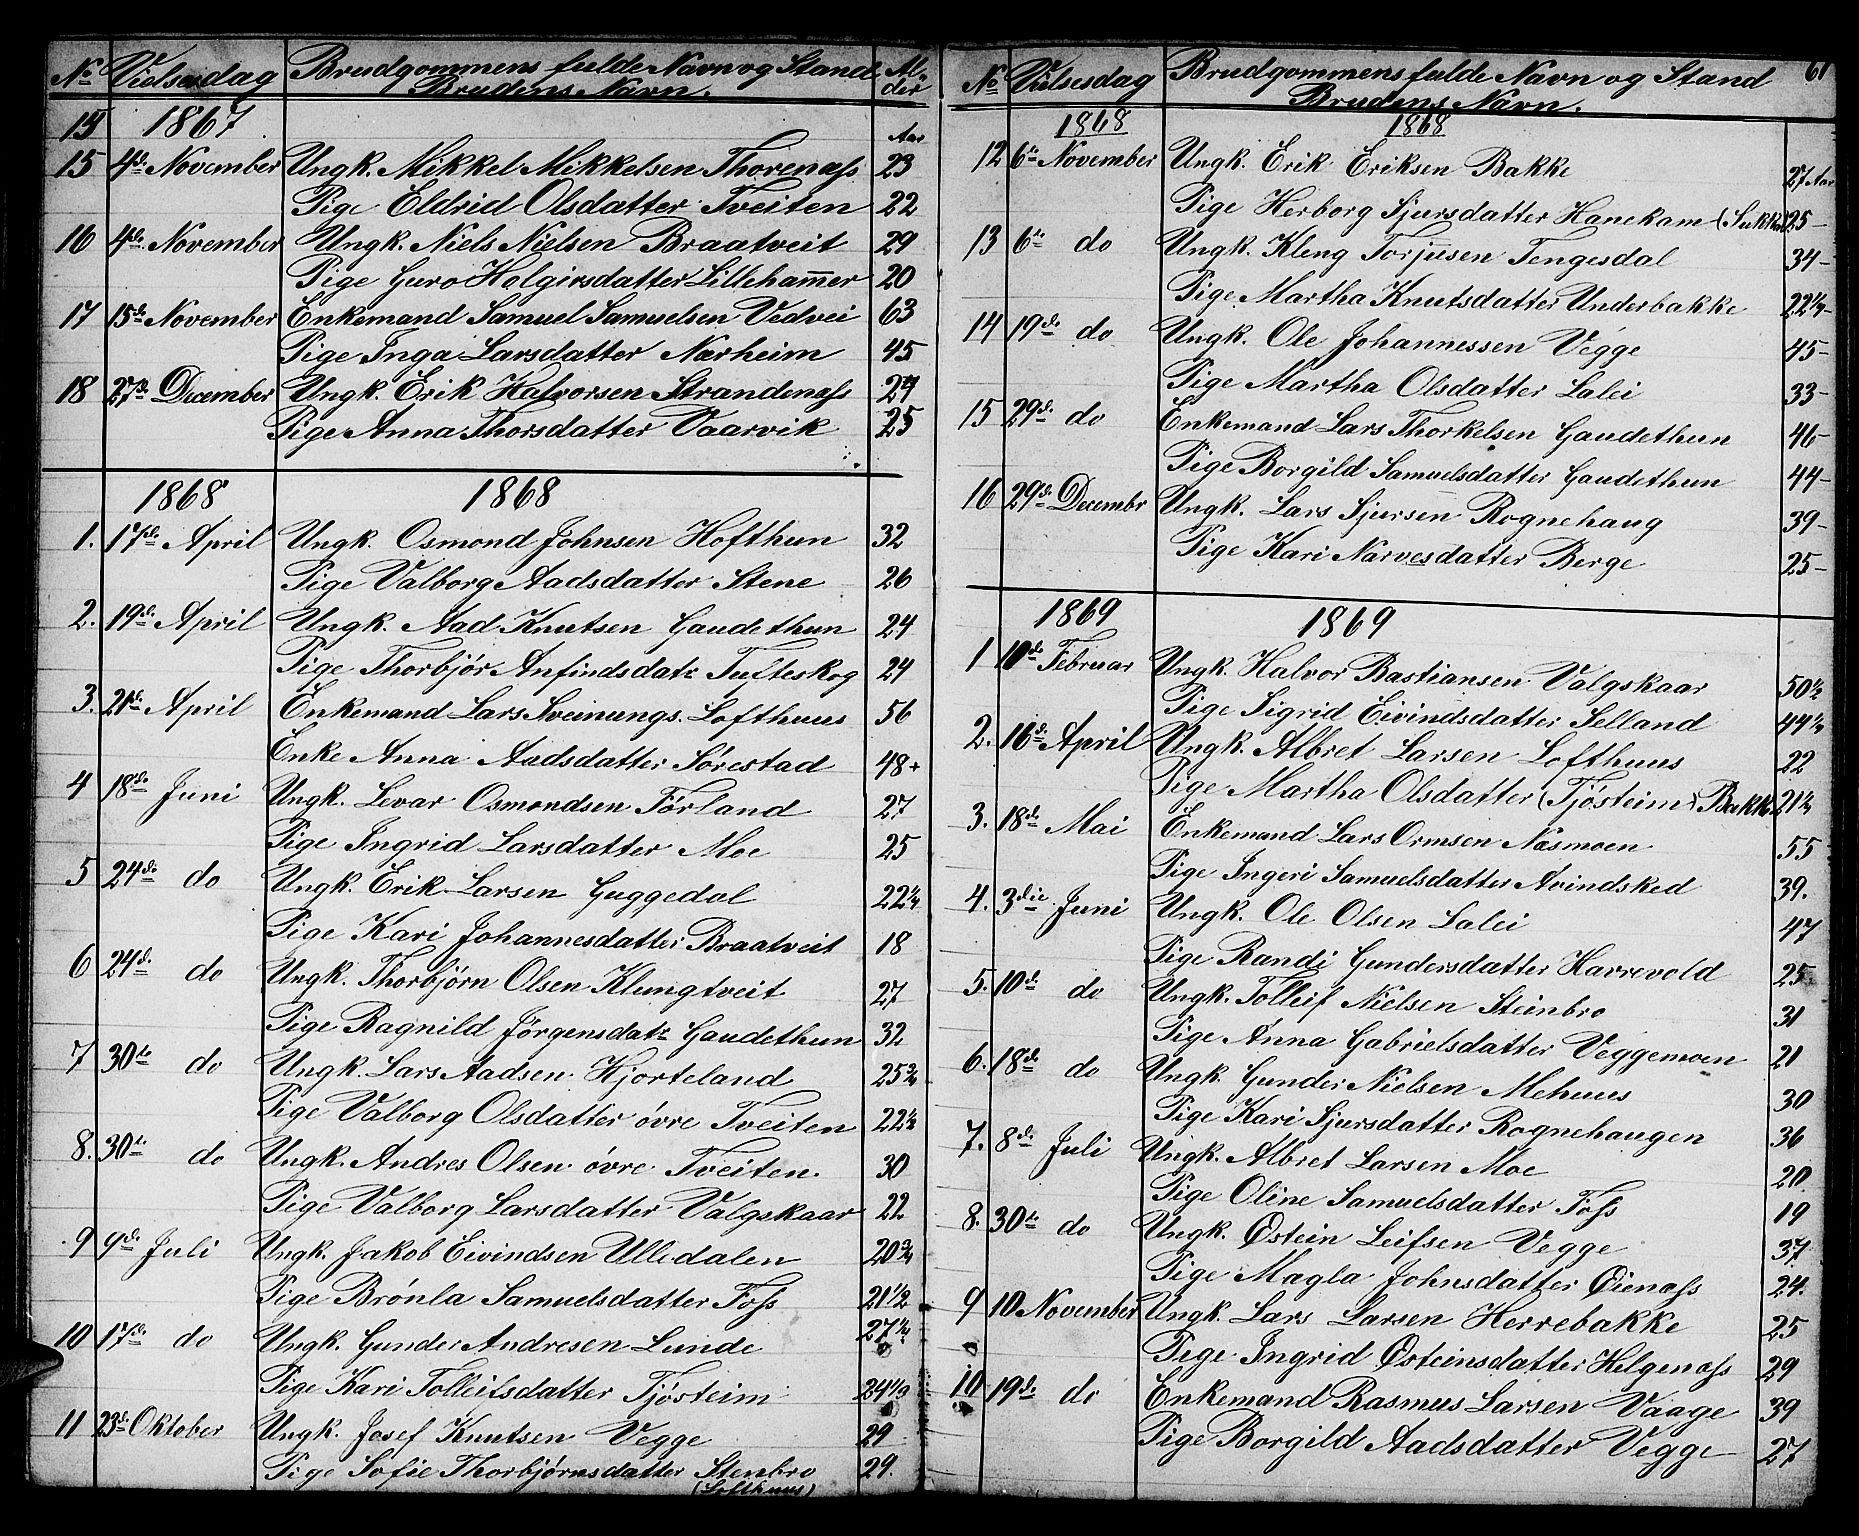 No Vielsesdag Brudgommens fulde Navn og Stand Al-
Brudens Navn. der
1867 Aar
15 4de November Ungk. Mikkel Mikkelsen Thorenæss 23
Pige Eldrid Olsdatter Tveiten 22
16 4de November Ungk. Niels Nielsen Braatveit 29
Pige Guro Holgirsdatter Lilleham̄er 20
17 15de November Enkemand Samuel Samuelsen Vedvei 63
Pige Inga Larsdatter Nærheim 45
18 27de December Ungk. Erik Halvorsen Strandenæss 24
Pige Anna Thorsdatter Vaarvik 25
1868 1868
1. 17de April Ungk. Osmond Johnsen Hofthun 32
Pige Valborg Aadsdatter Stene 26
2. 19de April Ungk. Aad Knutsen Gaudethun 24
Pige Thorbjør Anfindsdatr Tufteskog 24
3. 21de April Enkemand Lars Sveinungs. Lofthuus 56
Enke Anna Aadsdatter Sørestad 48
4 18de Juni Ungk. Levar Osmondsen Førland 27
Pige Ingrid Larsdatter Moe 25
5 24de do Ungk. Erik Larsen Guggedal 22½
Pige Kari Johannesdatter Braatveit 18
6 24de do Ungk. Thorbjørn Olsen Klungtveit 27
Pige Ragnild Jørgensdatr Gaudethun 32
7 30te do Ungk. Lars Aadsen Hjorteland 25¾
Pige Valborg Olsdatter øvre Tveiten 22½
8. 30te do Ungk. Andres Olsen øvre Tveiten. 30
Pige Valborg Larsdatter Valgskaar 22
9 9de Juli Ungk. Jakob Eivindsen Ulledalen 20¾
Pige Brønla Samuelsdatter Foss 21½
10 17de do Ungk. Gunder Andresen Lunde 27¼
Pige Kari Tolleifsdatter Tjøsteim 24½
11 23de Oktober Ungk. Josef Knutsen Vegge 29
Pige Sofie Thorbjørnsdatter Stenbro 29.
(Lofthuus)
61
No Vielsesdag Brudgommens fulde Navn og Stand
Brudens Navn.
1868 1868
12 6te November Ungk. Erik Eriksen Bakke 27 Aar
Pige Herborg Sjursdatter Hanekam 25
13 6te do Ungk. Kleng Torjusen Tengesdal 34
Pige Martha Knutsdatter Underbakke 22½
14 19de do Ungk. Ole Johannessen Vegge 45
Pige Martha Olsdatter Lalei 33
15 29de do Enkemand Lars Thorkelsen Gaudethun 46
Pige Borgild Samuelsdatter Gaudethun 44
16 29de Decembr Ungk. Lars Sjursen Rognehaug 39
Pige Kari Narvesdatter Berge 25
1869 1869
1 10de Februar Ungk. Halvor Bastiansen Valgskaar 50½
Pige Sigrid Eivindsdatter Selland 44½
2. 16de April Ungk. Albret Larsen Lofthuus 22
Pige Martha Olsdatter (Tjøsteim) Bakke 21½
3. 18de Mai Enkemand Lars Ormsen Næsmoen 55
Pige Ingeri Samuelsdatter Avindsked 39.
4. 3die Juni Ungk. Ole Olsen Lalei 47
Pige Randi Gundersdatter Havrevold 25
5. 10de do Ungk. Tolleif Nielsen Steinbro 31
Pige Anna Gabrielsdatter Veggemoen 21
6. 18de do Ungk. Gunder Nielsen Mehuus 30
Pige Kari Sjursdatter Rognehaugen 36
7. 8de Juli Ungk. Albret Larsen Moe 20
Pige Oline Samuelsdatter Foss 19
8. 30te do Ungk. Østein Leifsen Vegge 37
Pige Magla Johnsdatter Øienæss 24.
9 10 November Ungk. Lars Larsen Herrebakke 25
Pige Ingrid Østeinsdatter Helgenæss 29
10 19de do Enkemand Rasmus Larsen Vaage 39
Pige Borgild Aadsdatter Vegge 27